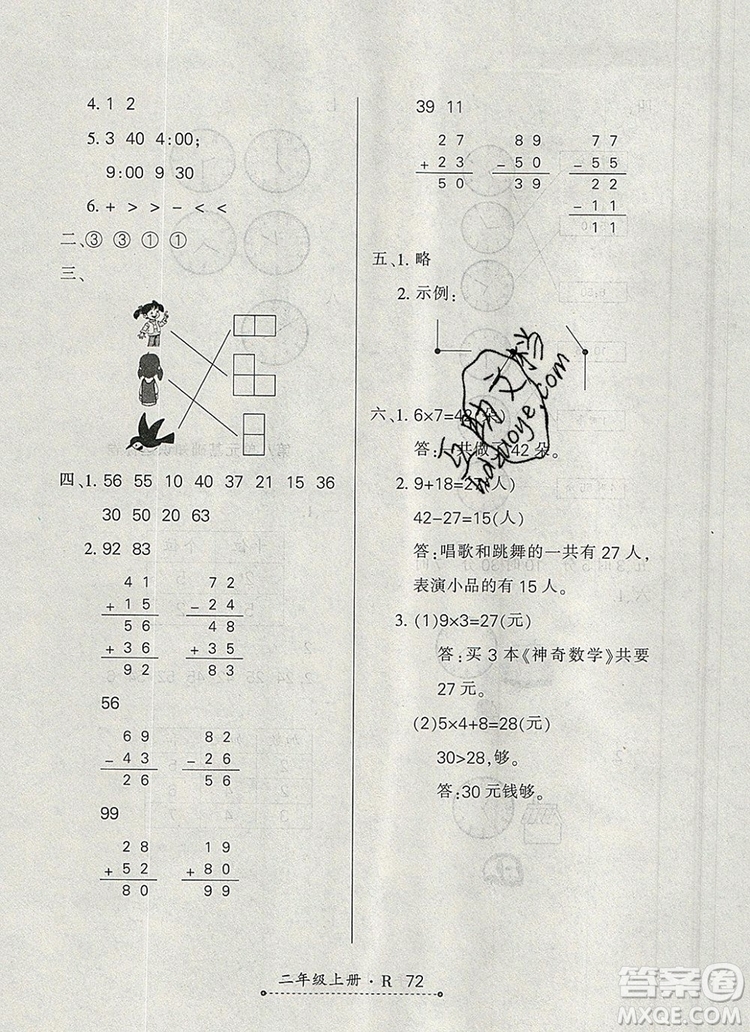 4. 1 2
5. 3 40 4:00;
9:00 9 30
6. + > > − < <
二、③ ③ ① ①
三、
四、1. 56 55 10 40 37 21 15 36
30 50 20 63
2. 92 83
4 1
+ 1 5
5 6
+ 3 6
9 2
7 2
− 2 4
4 8
+ 3 5
8 3
56
6 9
− 4 3
2 6
8 2
− 2 6
5 6
99
2 8
+ 5 2
8 0
1 9
+ 8 0
9 9
39 11
2 7
+ 2 3
5 0
8 9
− 5 0
3 9
7 7
− 5 5
2 2
− 1 1
1 1
五、1. 略
2. 示例:
六、1. 6×7=42(朵)
答:一共做了 42 朵。
2. 9+18=27(人)
42-27=15(人)
答:唱歌和跳舞的一共有 27 人,
表演小品的有 15 人。
3. (1)9×3=27(元)
答:买 3 本《神奇数学》共要
27 元。
(2)5×4+8=28(元)
30>28,够。
答:30 元钱够。
二年级上册·R 72
互助文档
huzuoye.com
答案圈
MXQE.COM